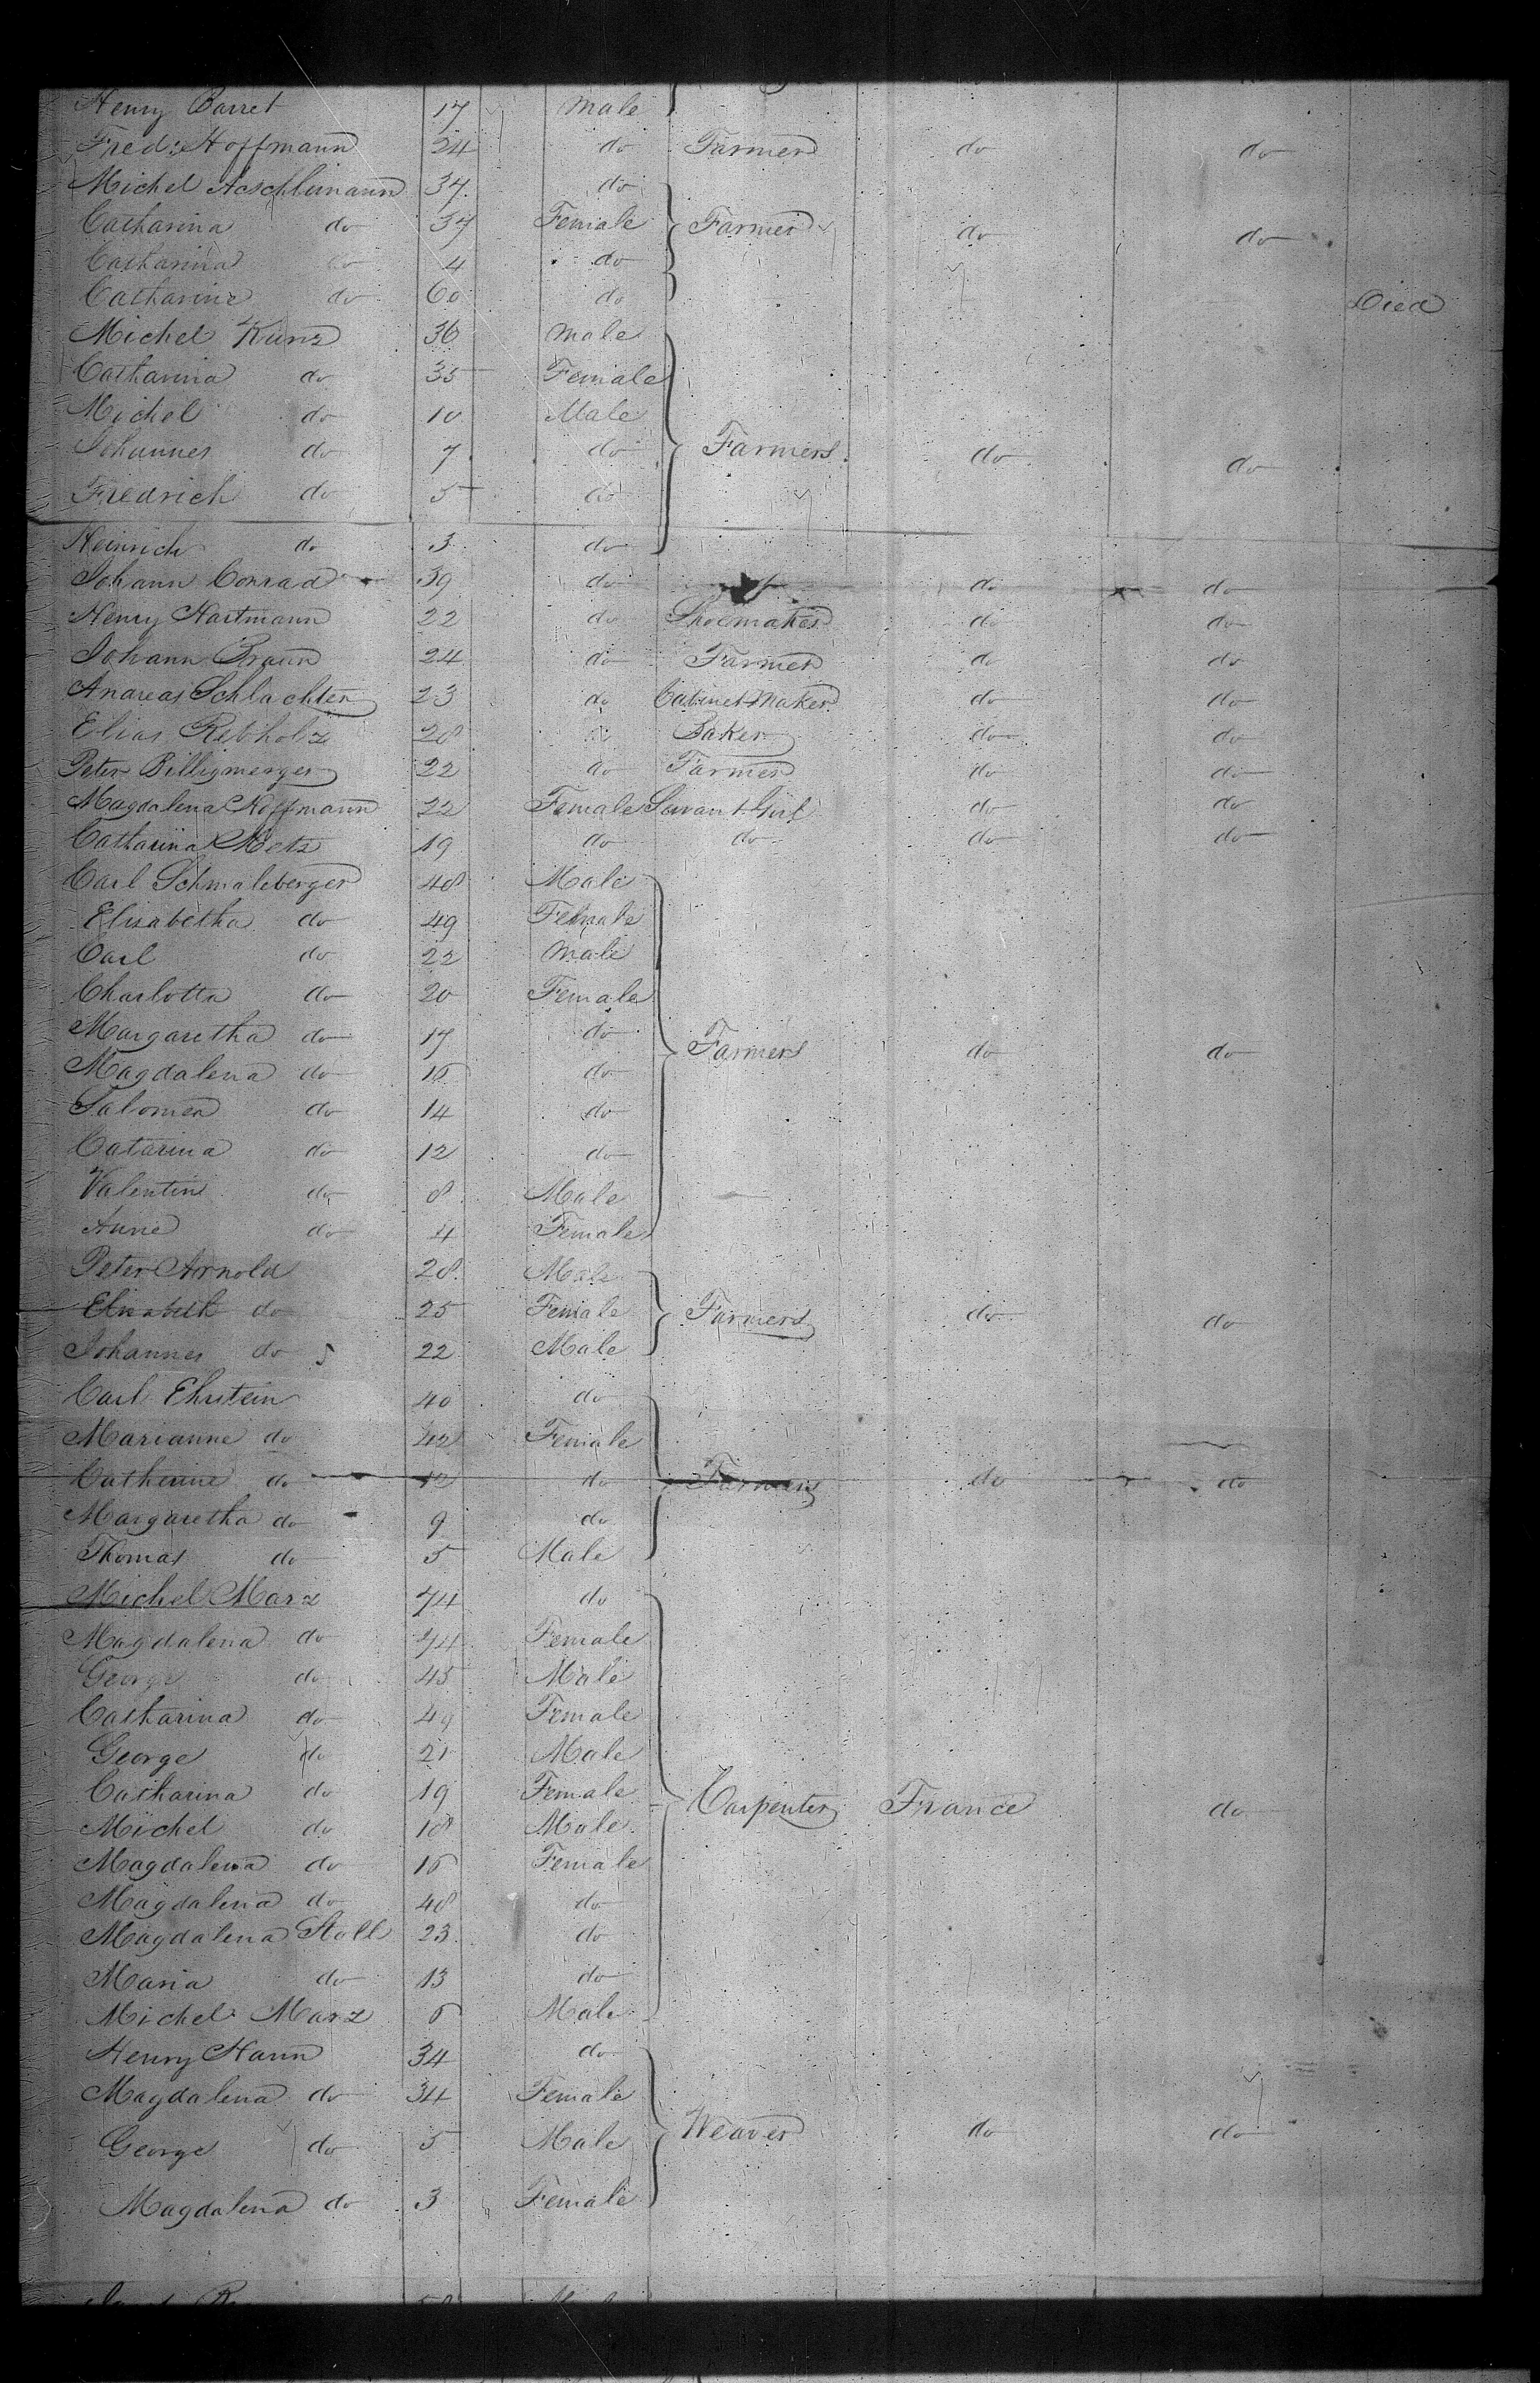 Henry Barret 17 Male
Fred: Hoffmann 24 do Farmer do do
Michel Aeschlimann 37 do
Catharina do 37 Female Farmer do do
Catharina do 4 do
Catharine do 60 do Died
Michel Kunz 36 Male
Catharina do 35 Female
Michel do 10 Male
Johannes do 7 do Farmers do do
Fredrich do 5 do
Heinrich do 3 do
Johann Conrad 39 do do do
Henry Hartmann 22 do Shoemaker do do
Johann Braun 24 do Farmer do do
Andreas Schlachter 23 do Cabinet Maker do do
Elias Rebholz 28 do Baker do do
Peter Billigmerger 22 do Farmer do do
Magdalena Hoffmann 22 Female Servant Girl do do
Catharina Metz 19 do do do do
Carl Schmaleberger 48 Male
Elisabetha do 49 Female
Carl do 22 Male
Charlotta do 20 Female
Margaretha do 17 do Farmers do do
Magdalena do 16 do
Salomea do 14 do
Catarina do 12 do
Valentin do 8 Male
Anne do 4 Female
Peter Arnold 28 Male
Elisabeth do 25 Female Farmers do do
Johannes do 22 Male
Carl Ehrstein 40 do
Marianne do 42 Female
Catherine do 12 do Farmers do do
Margaretha do 9 do
Thomas do 5 Male
Michel Marz 74 do
Magdalena do 74 Female
George do 45 Male
Catharina do 49 Female
George do 21 Male
Catharina do 19 Female Carpenter France do
Michel do 18 Male
Magdalena do 16 Female
Magdalena do 48 do
Magdalena Stoll 23 do
Maria do 13 do
Michel Marz 6 Male
Henry Hann 34 do
Magdalena do 34 Female
George do 5 Male Weaver do do
Magdalena do 3 Female